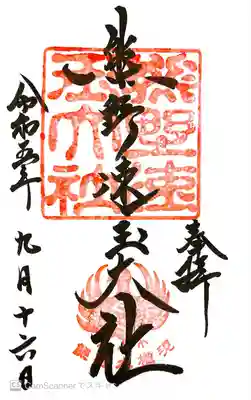 奉拝
熊野速玉大社
令和五年
九月十六日
熊野速
玉大社
CamScannerでスキャン